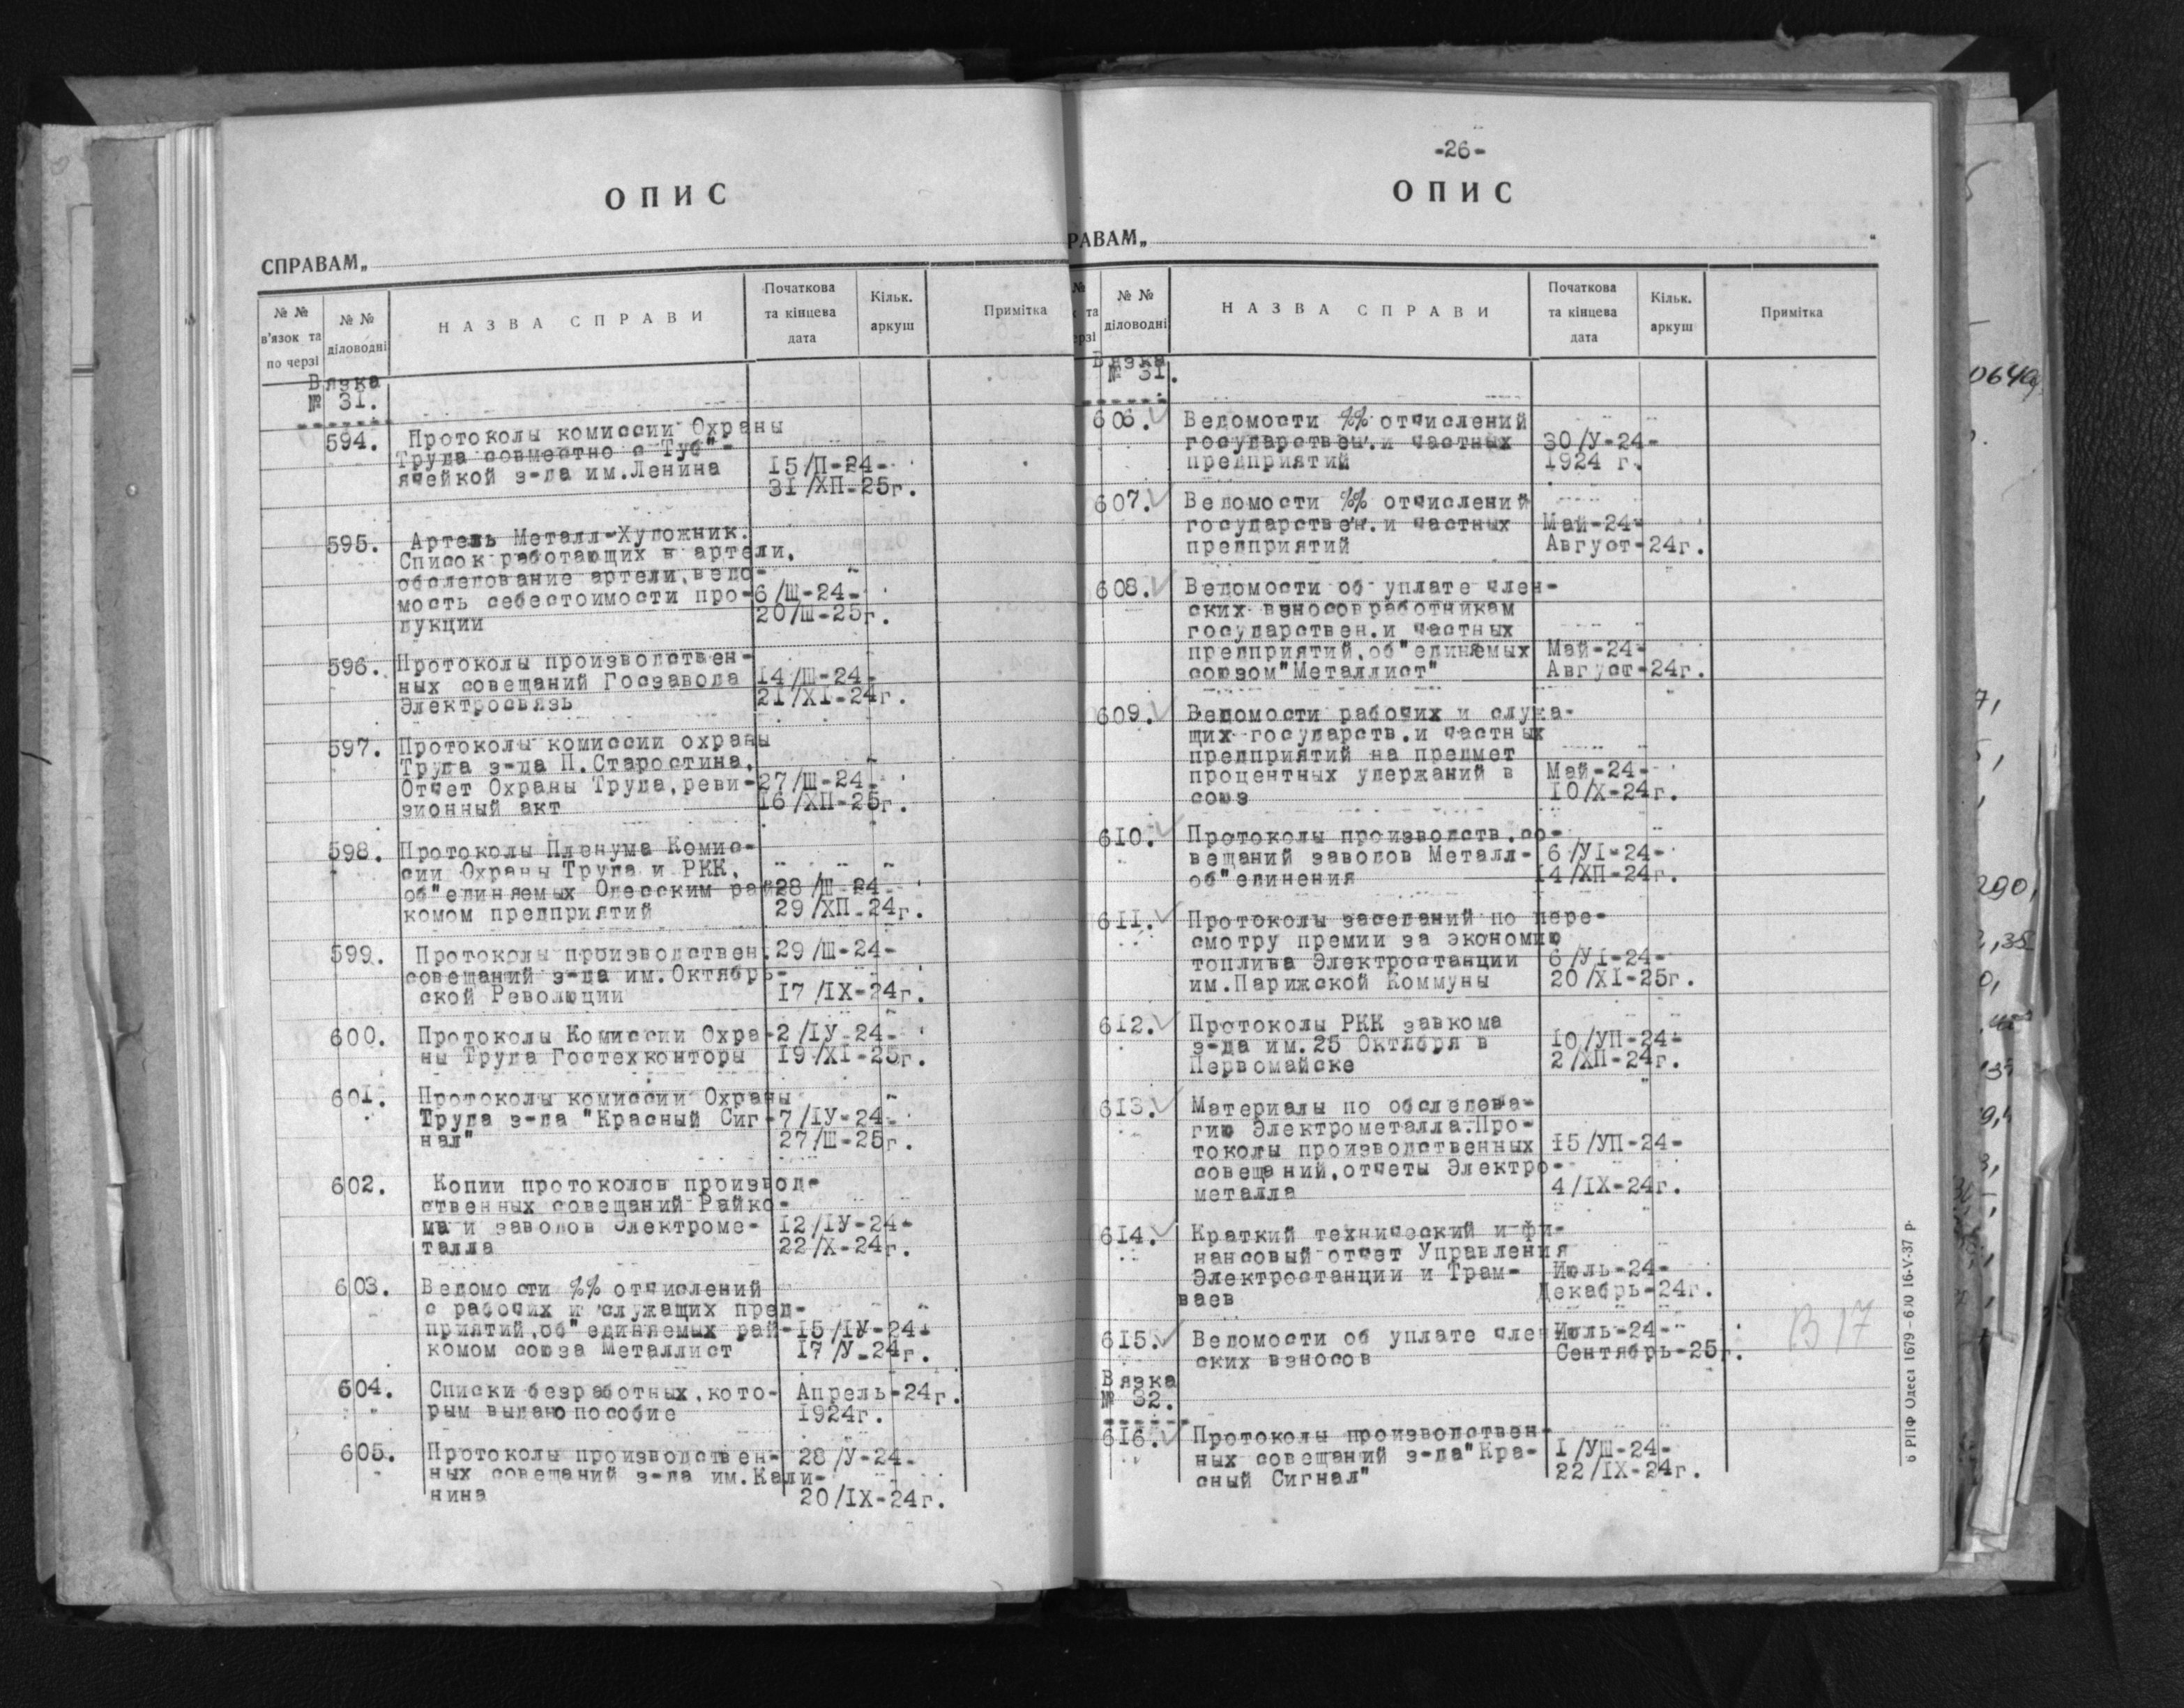 ОПИС
СПРАВАМ„
№ №
в'язок та
по черзі
№ №
діловодні
НАЗВА СПРАВИ
Початкова
та кінцева
дата
Кільк.
аркуш
Примітка
Вязка
№ 31.
594. Протоколы комиссии Охраны
Труда совместно с Туб"-
ячейкой з-да им.Ленина 15/П-24-
31/ХП-25г.
595. Артель Металл-Художник.
Список работающих в артели,
обследование артели, ведо-
мость себестоимости про- 6/Ш-24-
дукции 20/Ш-25г.
596. Протоколы производствен-
ных совещаний Госзавода 14/Ш-24-
Электросвязь 21/XI-24г.
597. Протоколы комиссии охраны
Труда з-да П.Старостина,
Отчет Охраны Труда, реви- 27/Ш-24-
зионный акт 16/ХП-25г.
598. Протоколы Пленума Комис-
сии Охраны Труда и РКК,
об"единяемых Одесским рай 28/Ш-24-
комом предприятий 29/ХП-24г.
599. Протоколы производствен. 29/Ш-24-
совещаний з-да им.Октябрь-
ской Революции 17/IX-24г.
600. Протоколы Комиссии Охра- 2/IУ-24-
ны Труда Гостехконторы 19/XI-25г.
601. Протоколы комиссии Охраны
Труда з-да "Красный Сиг- 7/IУ-24-
нал" 27/Ш-25г.
602. Копии протоколов производ-
ственных совещаний Райко-
ма и заводов Электроме- 12/IУ-24-
талла 22/X-24г.
603. Ведомости %% отчислений
с рабочих и служащих пред-
приятий, об"единяемых рай- 15/IУ-24-
комом союза Металлист 17/У-24г.
604. Списки безработных, кото- Апрель-24г.
рым выдано пособие 1924г.
605. Протоколы производствен- 28/У-24-
ных совещаний з-да им.Кали-
нина 20/IX-24г.
-26-
ОПИС
РАВАМ„ "
№
к та
ерзі
№ №
діловодні
НАЗВА СПРАВИ
Початкова
та кінцева
дата
Кільк.
аркуш
Примітка
Вязка
№ 31.
606. Ведомости %% отчислений
государствен. и частных 30/У-24-
предприятий 1924 г.
607. Ведомости %% отчислений
государствен. и частных Май-24-
предприятий Август-24г.
608. Ведомости об уплате член-
ских взносов работникам
государствен. и частных
предприятий, об"единяемых Май-24-
союзом "Металлист" Август-24г.
609. Ведомости рабочих и служа-
щих государств. и частных
предприятий на предмет
процентных удержаний в Май-24-
союз 10/X-24г.
610. Протоколы производств. со-
вещаний заводов Металл- 6/УI-24-
об"единения 14/ХП-24г.
611. Протоколы заседаний по пере-
смотру премии за экономию
топлива Электростанции 6/УI-24-
им.Парижской Коммуны 20/XI-25г.
612. Протоколы РКК завкома
з-да им.25 Октября в 10/УП-24-
Первомайске 2/ХП-24г.
613. Материалы по обследова-
гию Электрометалла. Про-
токолы производственных 15/УП-24-
совещаний, отчеты Электро-
металла 4/IX-24г.
614. Краткий технический и фи-
нансовый отчет Управления
Электростанции и Трам- Июль-24-
ваев Декабрь-24г.
615. Ведомости об уплате член Июль-24-
ских взносов Сентябрь-25г.
В 17
Вязка
№ 32.
616. Протоколы производствен-
ных совещаний з-да "Кра- 1/УШ-24-
сный Сигнал" 22/IX-24г.